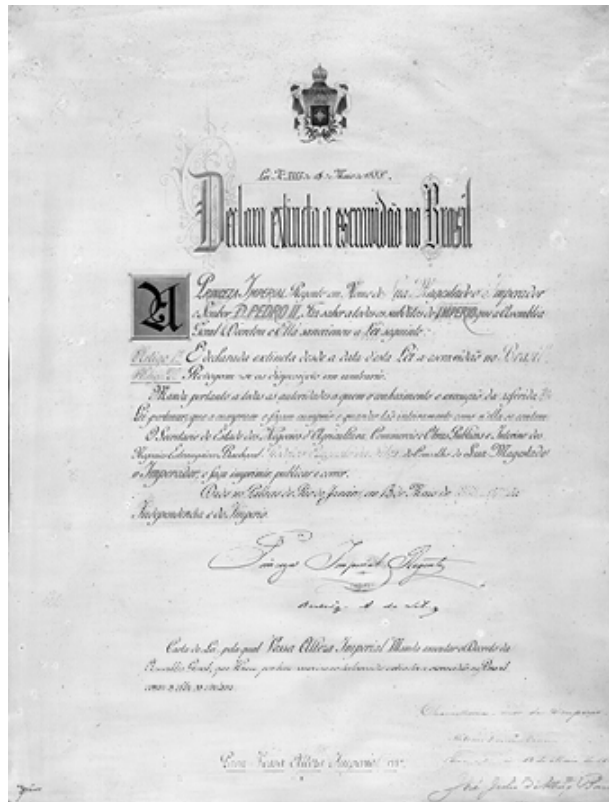 Lei Nº 3353 de 13 de Maio de 1888.
Declara extincta a escravidão no Brasil
A PRINCEZA IMPERIAL Regente em Nome de Sua Magestade o Imperador
o Senhor D. PEDRO II, Faz saber a todos os subditos do IMPERIO que a Assembléa
Geral Decretou e Ella sanccionou a Lei seguinte:
Artigo 1º É declarada extincta desde a data d'esta Lei a escravidão no Brazil.
Artigo 2º Revogam-se as disposições em contrario.
Manda portanto a todas as autoridades a quem o conhecimento e execução da referida
Lei pertencer, que a cumpram e façam cumprir e guardar tão inteiramente como n'ella se contem.
O Secretario de Estado dos Negocios d'Agricultura, Commercio e Obras Publicas e Interino dos
Negocios Estrangeiros Bacharel Rodrigo Augusto da Silva do Conselho de Sua Magestade
o Imperador, o faça imprimir, publicar e correr.
Dado no Palacio do Rio de Janeiro, em 13 de Maio de
Independencia e do Imperio.
Princeza Imperial Regente
Rodrigo A. da Silva
Carta de Lei, pela qual Vossa Alteza Imperial Manda executar o Decreto da
Assembléa Geral, que Houve por bem sanccionar declarando extincta a escravidão no Brazil
como n'ella se declara.
Para Vossa Alteza Imperial ver.
Chancellaria-mor do Imperio
José Julio de